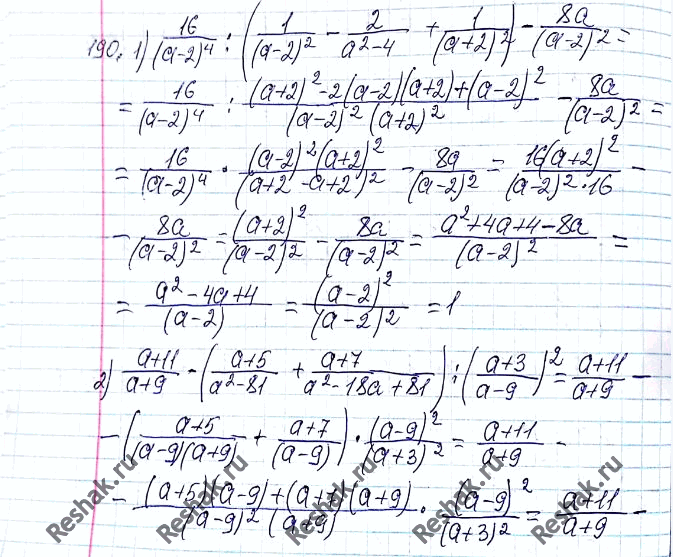 190. 1) 16/(a-2)⁴ : (1/(a-2)² - 2/(a²-4) + 1/(a+2)²) - 8a/(a-2)² =
= 16/(a-2)⁴ : ((a+2)²-2(a-2)(a+2)+(a-2)²)/((a-2)²(a+2)²) - 8a/(a-2)² =
= 16/(a-2)⁴ · ((a-2)²(a+2)²)/(a+2-a+2)² - 8a/(a-2)² = 16(a+2)²/((a-2)²·16) -
- 8a/(a-2)² = (a+2)²/(a-2)² - 8a/(a-2)² = (a²+4a+4-8a)/(a-2)² =
= (a²-4a+4)/(a-2) = (a-2)²/(a-2)² = 1
2) (a+11)/(a+9) - ((a+5)/(a²-81) + (a+7)/(a²-18a+81)) : ((a+3)/(a-9))² = (a+11)/(a+9) -
- ((a+5)/((a-9)(a+9)) + (a+7)/(a-9)) · (a-9)²/(a+3)² = (a+11)/(a+9) -
- ((a+5)(a-9)+(a+7)(a+9))/((a-9)²(a+9)) · (a-9)²/(a+3)² = (a+11)/(a+9) -
Reshak.ru
Reshak.ru
Reshak.ru
Reshak.ru